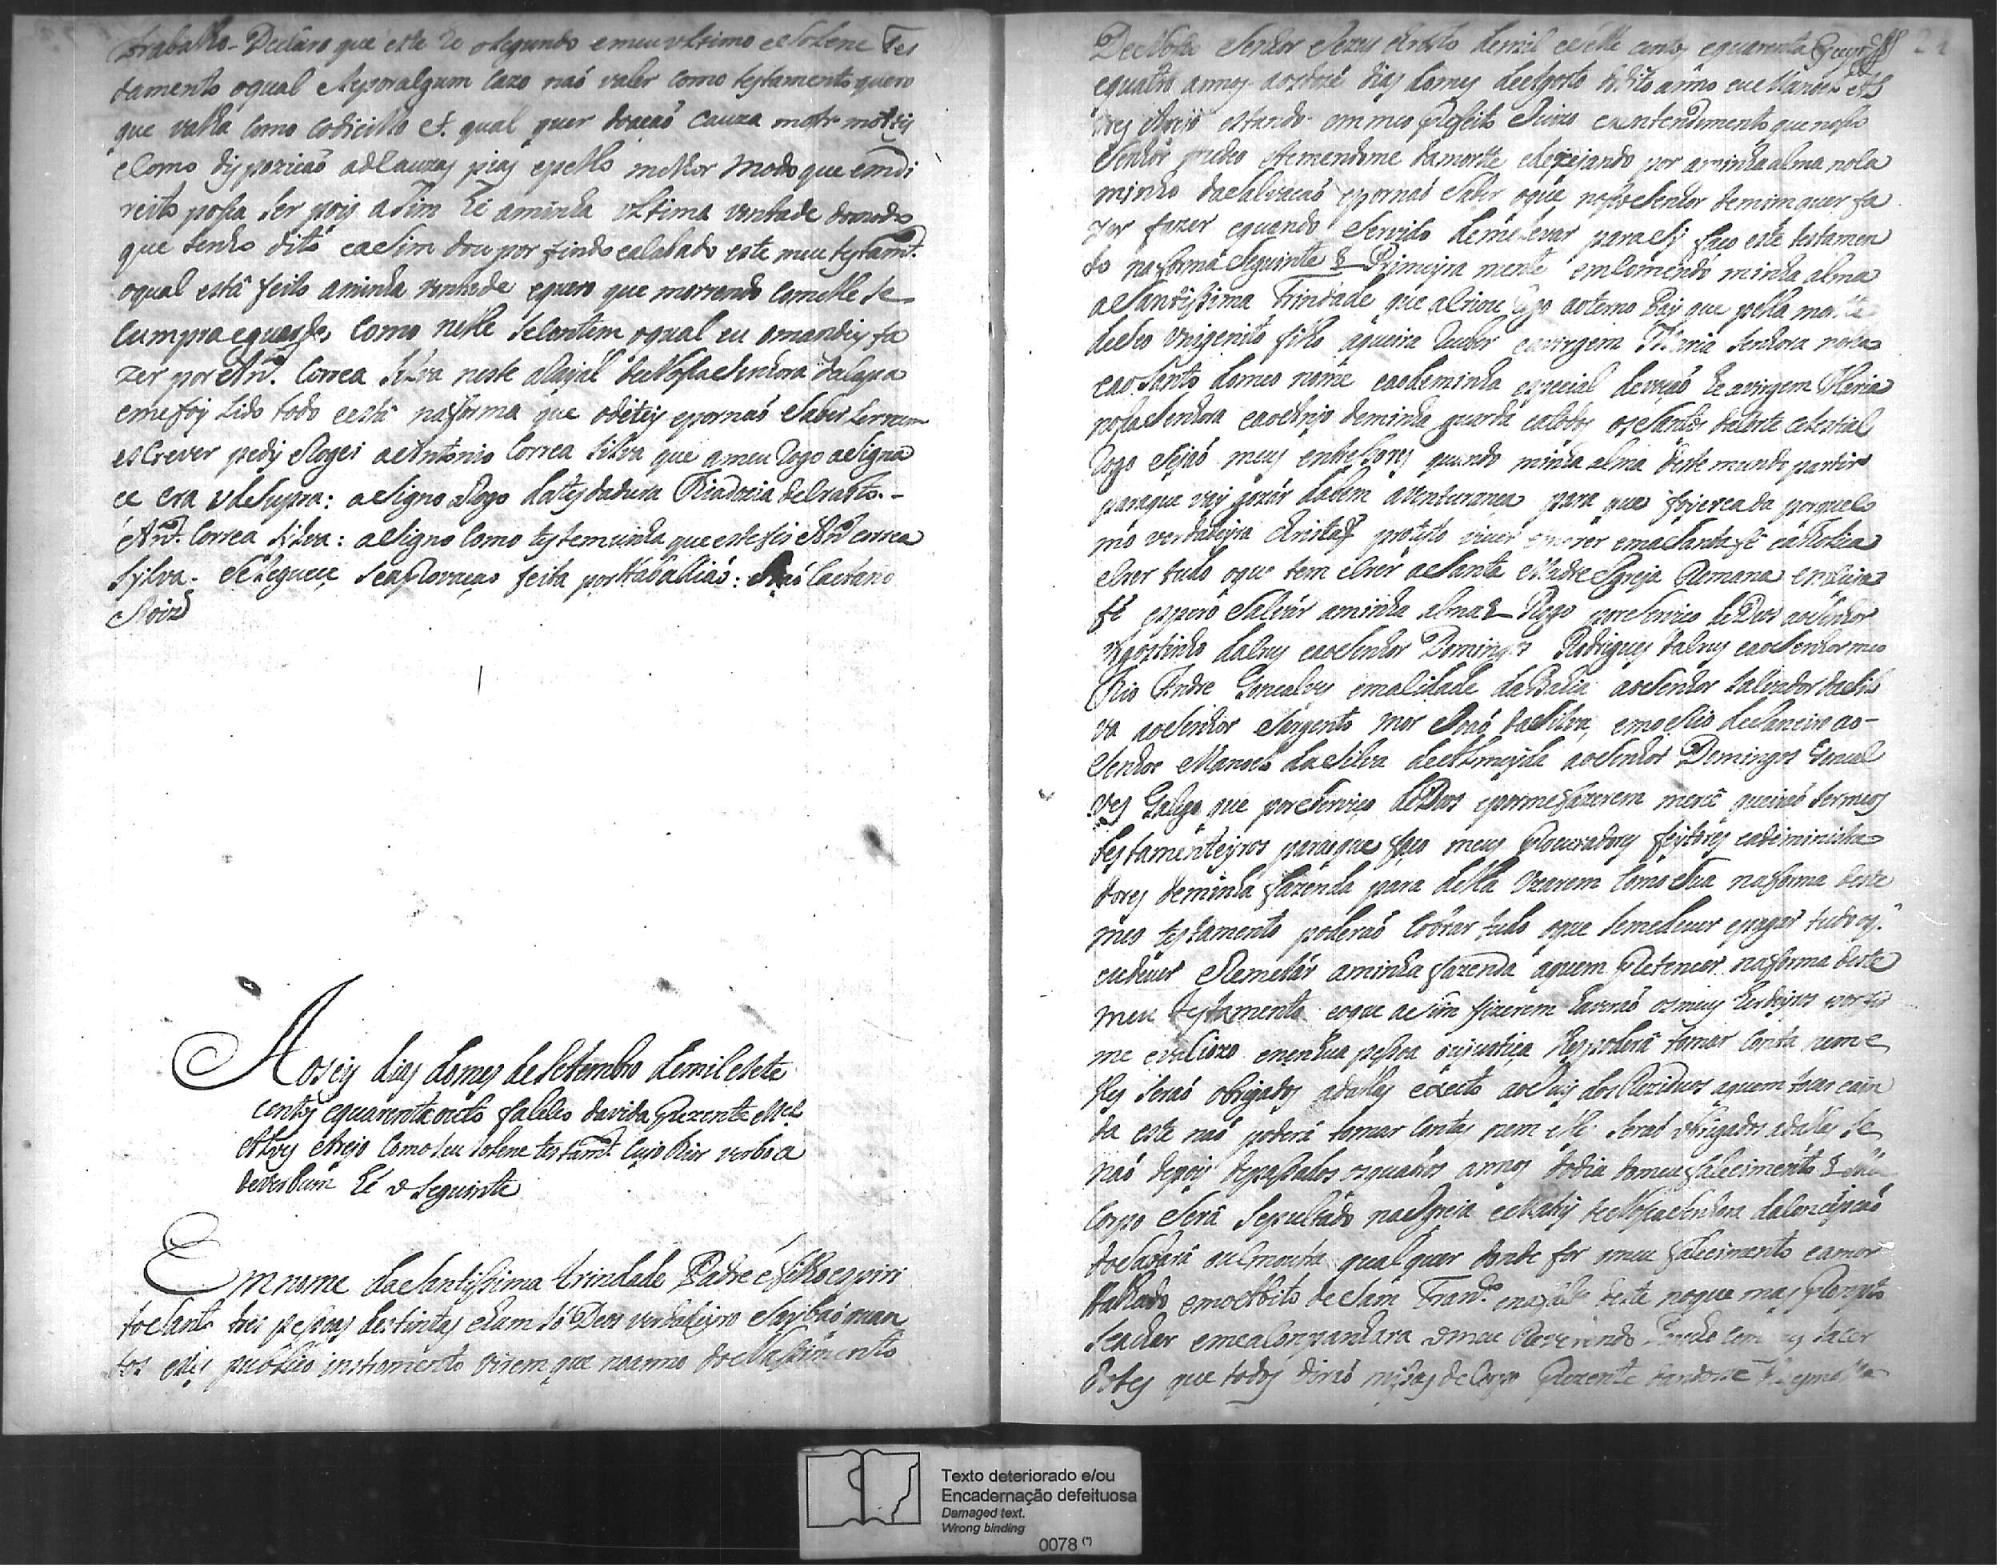 trabalho - Declaro que este he o segundo e meu ultimo e solene Tes
tamento o qual se por algum cazo naõ valer como testamento quero
que valha como codicillo et. qual quer doacaõ cauza mortis
e como dispozicaõ ad cauzas pias e pello milhor modo que em di
reito possa ser pois asim he a minha ultima vontade do modo
que tenho dito e asim dou por findo e acabado este meu testamt.
o qual está feito a minha vontade e quero que morrendo com elle se
cumpra e guarde, como nelle se contem o qual eu o mandey fa
zer por Ant. Correa Silva neste a Rayal de Nossa Senhora da Lapa
e me foy lido todo e está na forma que o ditey e por naõ saber ler nem
escrever pedy e Roguei a Antonio Correa Silva que a meu Rogo asigna
ce era ut Supra: asigno a Rogo da testadura
Ant. Correa Silva: asigno como testemunha que este fis Ant. Correa
Sylva. Se segue a sua aprovacaõ feita por tabaliaõ: Joaõ Caetano
Roiz
Aos seis dias do mes de Setembro de mil e sete
centos e quarenta e oito faleceo da vida prezente Mel.
Alves Arejo com o seu solene testamt. cujo theor verbo a
deverbum hé o seguinte
Em nome da Santissima trindade Padre e filho espiri
to Santo tres pessoas destintas e hum só Deos verdadeyro Saybaõ quan
tos este publico instromento virem que no anno do Nascimento
De Nosso Senhor Jezus christo de mil e sette centos e quarenta
e quatro annos aos doze dias do mes de Agosto do dito anno eu Manoel
Alves Arejo estando em meu perfeito Juizo e entendimento que nosso
Senhor me deo temendome da morte e dezejando por a minha alma no ca
minho da Salvacaõ e por naõ Saber o que nosso Senhor de mim quer fa
zer e quando Servido de me levar para sy faço este testamen
to na forma Seguinte § Primeyra mente emcomendo minha alma
a Santissima Trindade que a criou Rogo ao terno Pay que pella morte
de seu Unigenito filho a queira Receber e a virgem Maria Senhora nossa
e ao Santo do meu nome e ao de minha especial devoçaõ he a virgem Maria
nossa Senhora e ao Anjo de minha guarda e a todos os Santos da Corte celestial
Rogo Sejaõ meus entresores quando minha alma deste mundo partir
para que vay gozar da bem aventuranca para que foy creada porque co
mo verdadeyro christaõ protesto viver e morrer em a Santa fé catholica
e crer tudo o que tem e crer a Santa Madre Igreja Romana em cuja
fé espero Salvar a minha alma § Rogo por Servico de Deos ao Senhor
Agostinho da Crus e ao Senhor Domingos Rodrigues da Crus e ao Senhor meo
Tio Andre Goncalves em a Cidade da Bahia ao Senhor Salvador da Sil
va ao Senhor Sargento mor Joaõ da Silva, em o Rio de Janeiro ao-
Senhor Manoel da Silva de Almeyda ao Senhor Domingos Goncal
ves Galego que por Servico de Deos e por me fazerem mercê queiraõ ser meos
testamenteyros para o que faço meus Procuradores feytores e administra
dores de minha fazenda para della Uzarem como Sua na forma deste
meo testamento poderaõ cobrar tudo o que se me dever e pagar tudo o q.
eu dever e Remetar a minha fazenda a quem pertencer na forma deste
meu testamento e o que asim fizerem haveraõ os meus herdeyros por fir
me e valiozo e nenhua pessoa ou justiça lhes poderá tomar conta nem e
lles seraõ obrigados a dallas exceto ao Juiz dos Reziduos a quem toca e ain
da este naõ poderá tomar contas nem elle seraõ obrigados a dallas se
naõ depois de passados os quatro annos do dia do meu falecimento § Meu
Corpo Será Sepultado na Igreja e Matris de Nossa Senhora da Conceipcaõ
do Sabará ou em outra qual quer donde for meu falecimento e amor
talhado em o Abito de Sam Franc.º e na falta deste no que mais prompto
se achar e me acompanhará o meu Reverendo Parocho com os sacer
dotes que todos diraõ missas de Corpo prezente dandose
Texto deteriorado e/ou
Encadernação defeituosa
Damaged text.
Wrong binding
0078 (*)